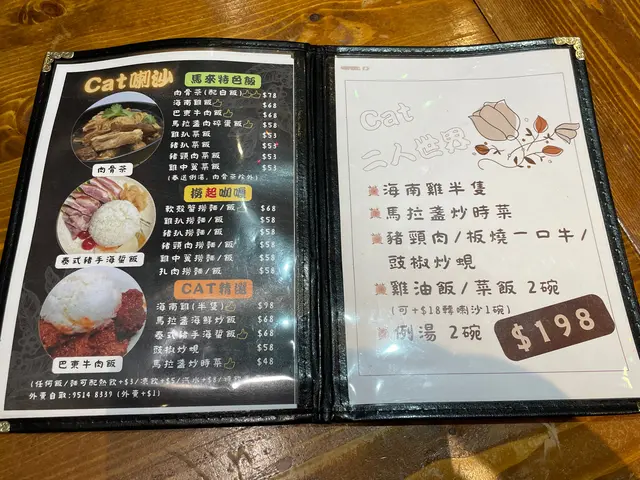 Cat喇沙
馬來特色飯
肉骨茶(配白飯) $78
海南雞飯 $68
巴東牛肉飯 $68
馬拉盞肉碎蛋飯 $58
雞扒菜飯 $53
豬扒菜飯 $53
豬頸肉菜飯 $53
雞中翼菜飯 $53
(奉送例湯, 肉骨茶除外)
肉骨茶
撈起咖喱
軟殼蟹撈麵/飯 $68
雞扒撈麵/飯 $58
豬扒撈麵/飯 $58
豬頸肉撈麵/飯 $58
雞中翼撈麵/飯 $58
扎肉撈麵/飯 $58
泰式豬手海蜇飯
CAT精選
海南雞(半隻) $98
馬拉盞海鮮炒飯 $68
泰式豬手海蜇飯 $68
豉椒炒蜆 $58
馬拉盞炒時菜 $48
巴東牛肉飯
(任何飯/麵可配熱飲+$3/凍飲+$5/汽水+$8/
外賣自取:9514 8339 (外賣+$1)
Cat
二人世界
海南雞半隻
馬拉盞炒時菜
豬頸肉/板燒一口牛/
豉椒炒蜆
雞油飯/菜飯 2碗
(可+$18轉喇沙1碗)
例湯 2碗
$198